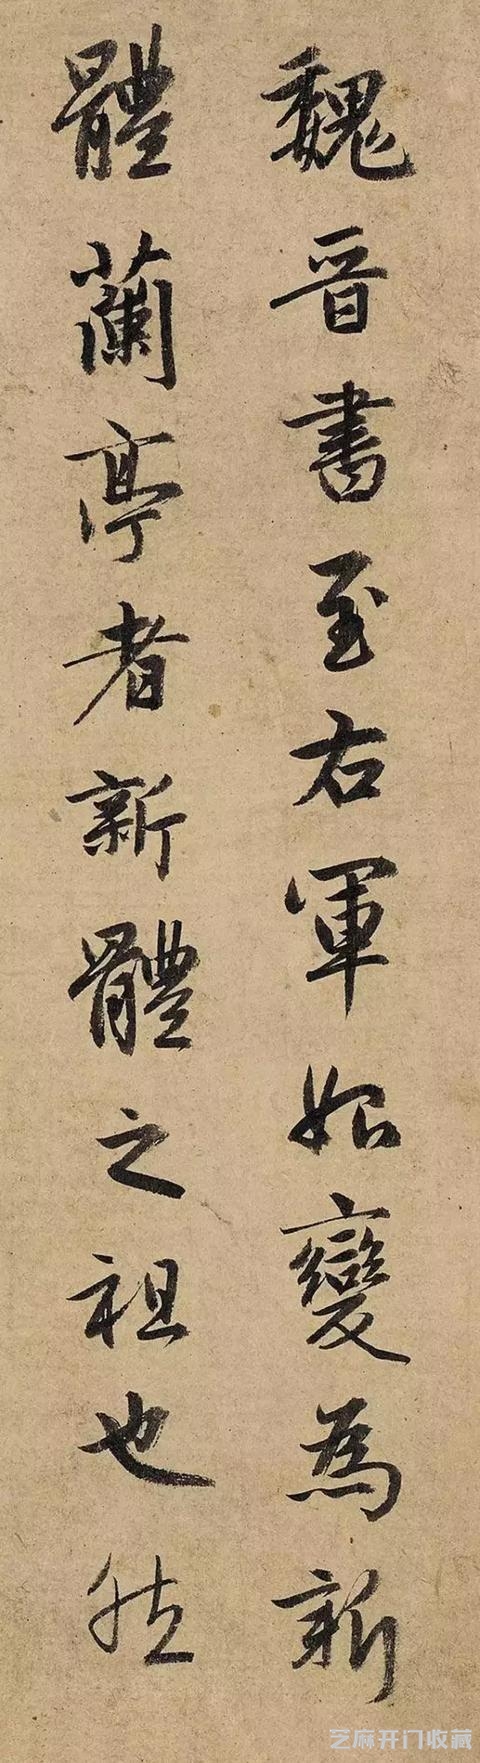 魏晉書至右軍始變為新
體蘭亭者新體之祖也然
芝麻开门收藏